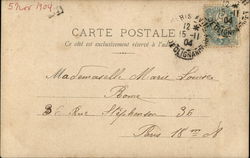 5 Nov 1904
CARTE POSTALE
Ce côté est exclusivement réservé à l'adresse
PARIS
12
5-11
04
Mademoiselle Marie Louise
Rome
36 Rue Stephenson 36
Paris 18me